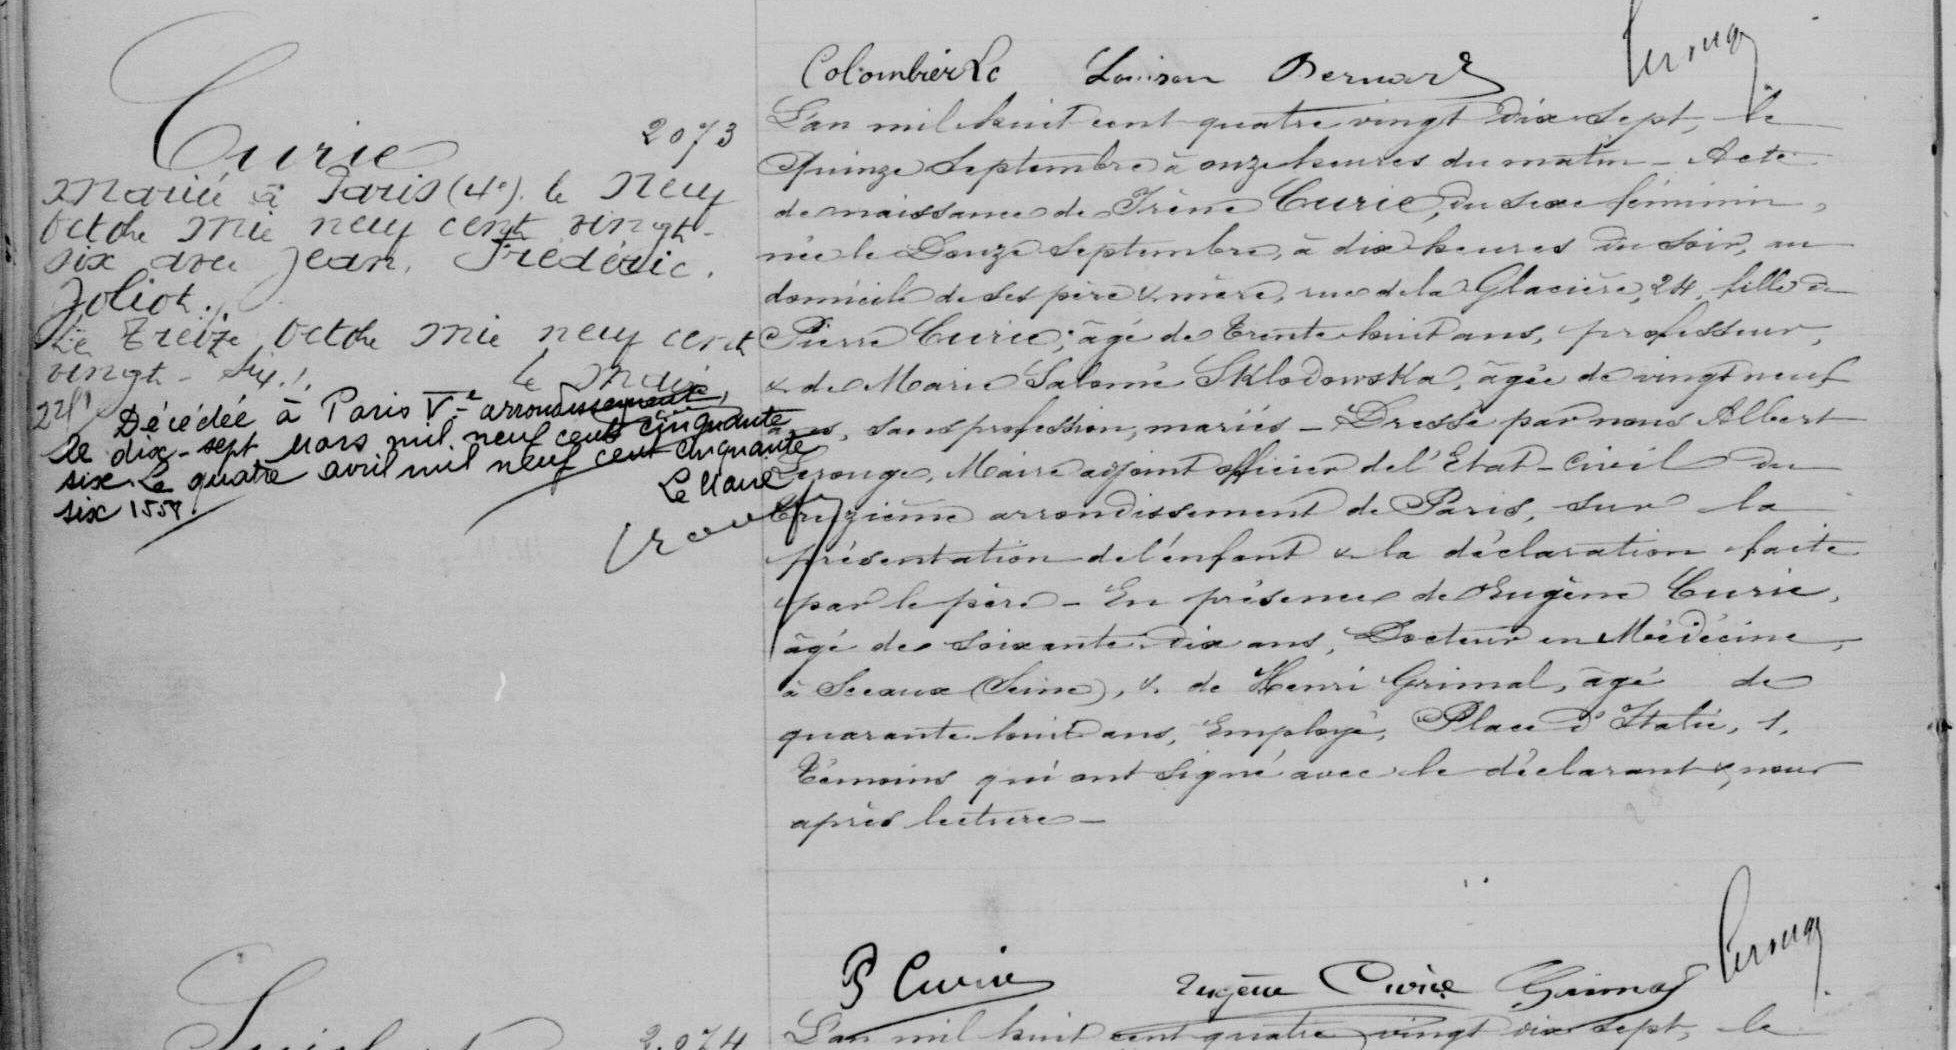 Colombier Lc Louison Bernard Lerouge
Curie
2073
Mariée à Paris (4e). le neuf
Octobre mil neuf cent vingt-
six avec Jean, Frédéric.
Joliot.
Le treize Octobre mil neuf cent
vingt-six.
Le Maire,
Décédée à Paris Ve arrondissement
le dix-sept Mars mil neuf cent cinquante
six Le quatre avril mil neuf cent cinquante
six 1558
Le Maire
L'an mil huit cent quatre vingt dix sept, le
Quinze Septembre à onze heures du matin - Acte
de naissance de Irène Curie, du sexe féminin,
née le Douze Septembre, à dix heures du soir, au
domicile de ses père & mère, rue de la Glacière, 24, fille de
Pierre Curie, âgé de trente huit ans, professeur,
& de Marie Salomé Sklodowska, âgée de vingt neuf
ans, sans profession, mariés - Dressé par nous Albert
Lerouge, Maire adjoint officier de l'Etat-Civil du
treizième arrondissement de Paris, sur la
présentation de l'enfant & la déclaration faite
par le père - En présence de Eugène Curie,
âgé de soixante dix ans, Docteur en Médecine,
à Sceaux (Seine), & de Henri Grimal, âgé de
quarante huit ans, Employé, Place d'Italie, 1,
témoins qui ont signé avec le déclarant & nous
après lecture -
P Curie Eugène Curie Grimal Lerouge
2.074
L'an mil huit cent quatre vingt dix sept, le